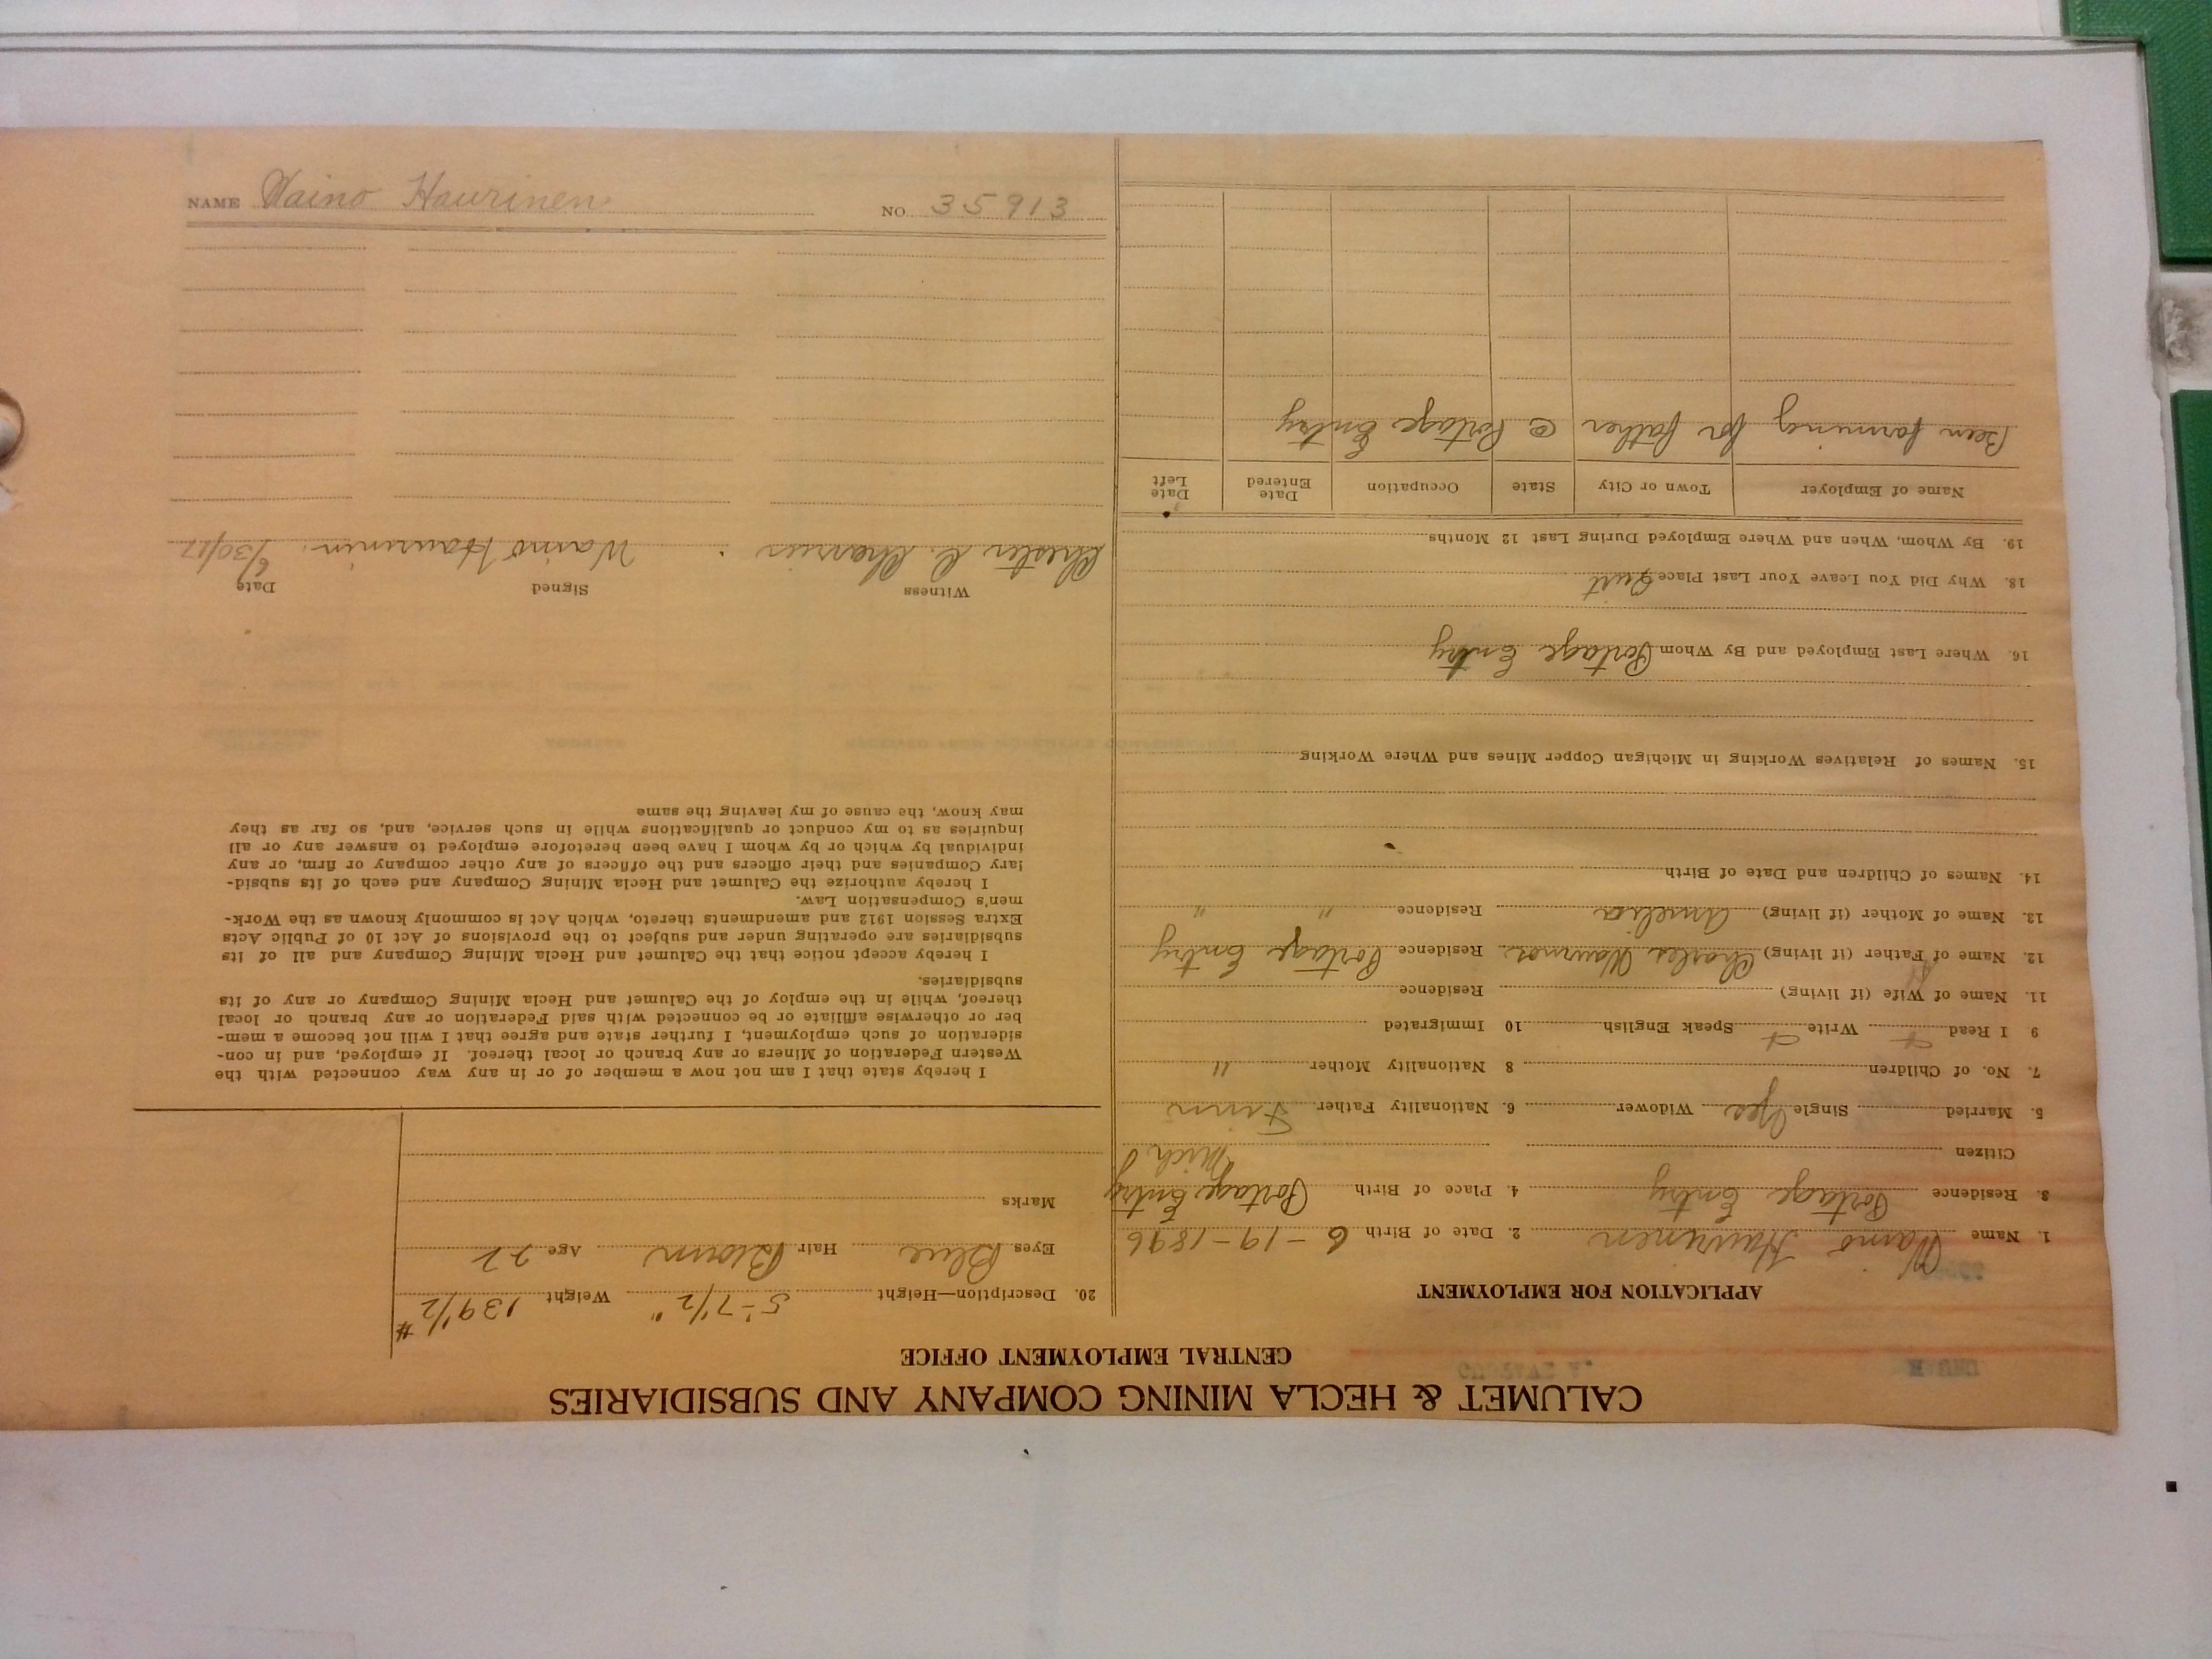 CALUMET & HECLA MINING COMPANY AND SUBSIDIARIES
CENTRAL EMPLOYMENT OFFICE
APPLICATION FOR EMPLOYMENT
1. Name Waino Haurinen 2. Date of Birth 6-19-1896
3. Residence Portage Entry 4. Place of Birth Portage Entry
Citizen Mich
5. Married Single Yes Widower 6. Nationality Father Finn
7. No. of Children 8 Nationality Mother "
9 I Read Write Speak English 10 Immigrated
11. Name of Wife (if living) Residence
12. Name of Father (if living) Charles Residence Portage Entry
13. Name of Mother (if living) Amelia Residence " "
14. Names of Children and Date of Birth
15. Names of Relatives Working in Michigan Copper Mines and Where Working
16. Where Last Employed and By Whom Portage Entry
18. Why Did You Leave Your Last Place Quit
19. By Whom, When and Where Employed During Last 12 Months
Name of Employer Town or City State Occupation Date Entered Date Left
Been farming for father @ Portage Entry
20. Description—Height 5'-7 1/2" Weight 139 1/2 #
Eyes Blue Hair Brown Age 22
Marks
I hereby state that I am not now a member of or in any way connected with the
Western Federation of Miners or any branch or local thereof. If employed, and in con-
sideration of such employment, I further state and agree that I will not become a mem-
ber or otherwise affiliate or be connected with said Federation or any branch or local
thereof, while in the employ of the Calumet and Hecla Mining Company or any of its
subsidiaries.
I hereby accept notice that the Calumet and Hecla Mining Company and all of its
subsidiaries are operating under and subject to the provisions of Act 10 of Public Acts
Extra Session 1912 and amendments thereto, which Act is commonly known as the Work-
men's Compensation Law.
I hereby authorize the Calumet and Hecla Mining Company and each of its subsid-
iary Companies and their officers and the officers of any other company or firm, or any
individual by which or by whom I have been heretofore employed to answer any or all
inquiries as to my conduct or qualifications while in such service, and, so far as they
may know, the cause of my leaving the same
Witness Signed Date
Chester C. Waino Haurinen 6/30/17
NAME Waino Haurinen NO 35913